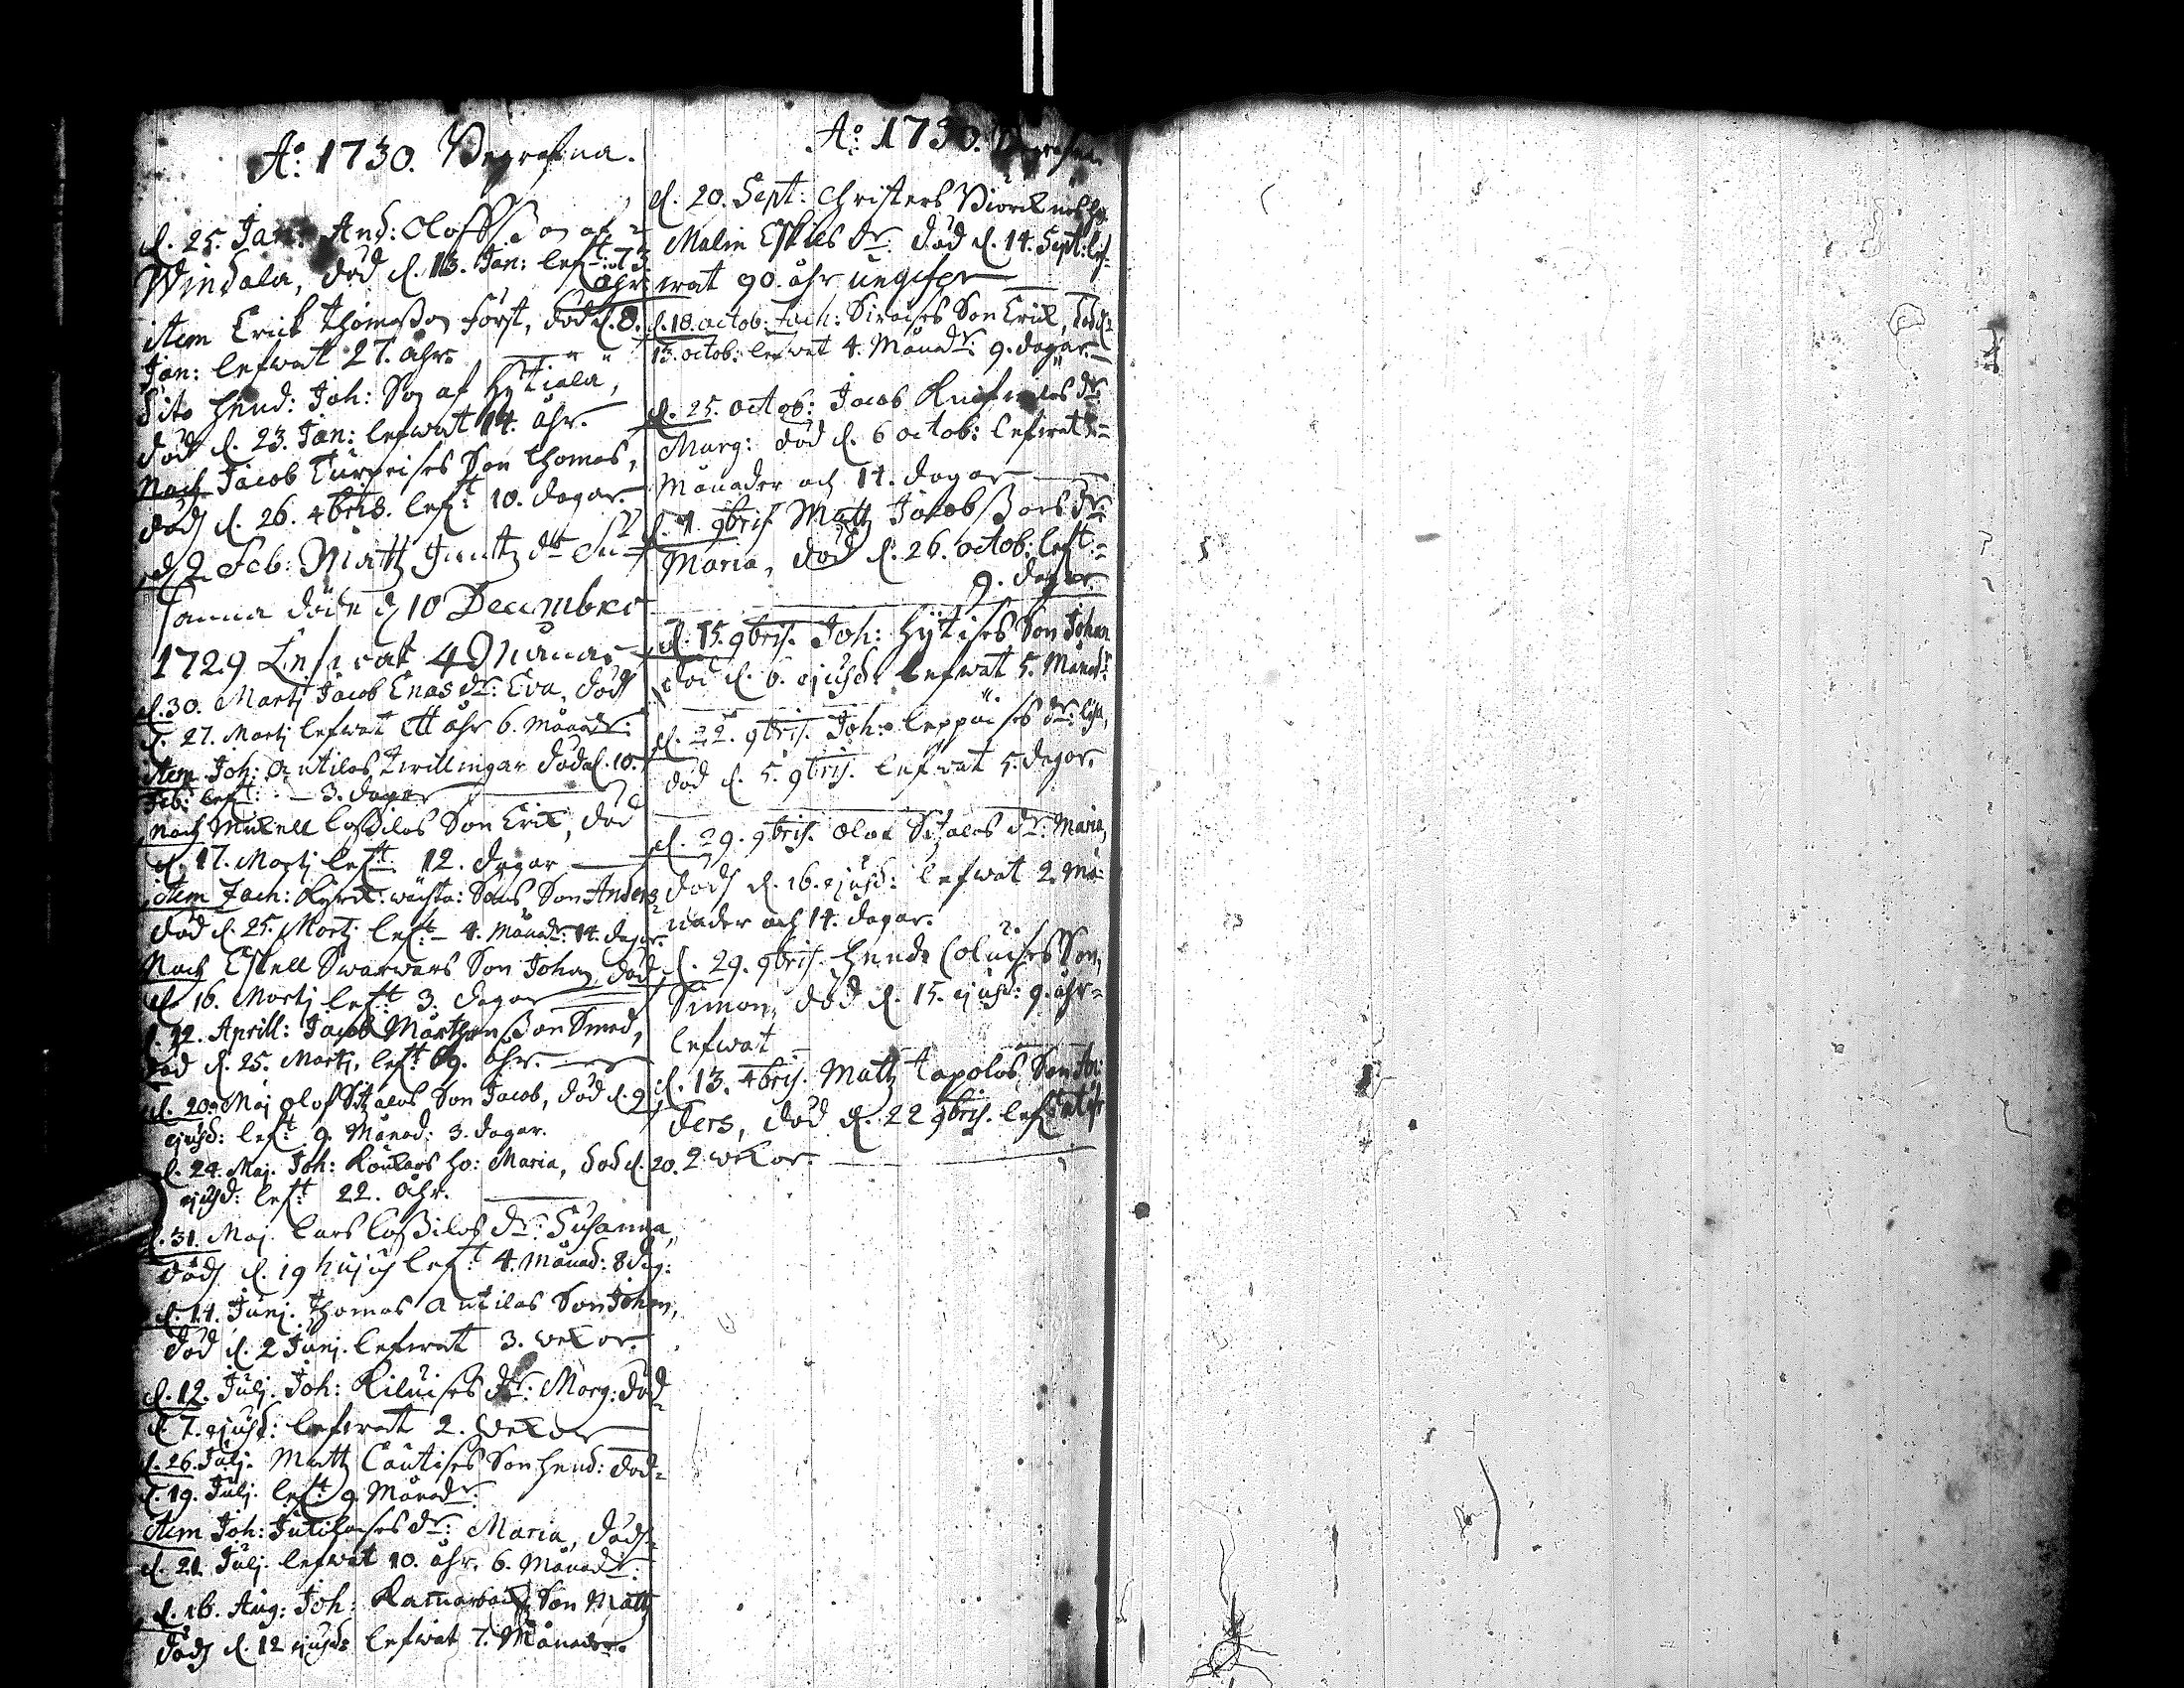 Ao: 1730. Begrafna.
d. 25. Jan: And: Olofsson af
Windala, död d. 13. Jan: left: 73.
åhr
item Erick Thomasson Först, död d. 8.
Jan: lefwat 27. åhr.
dito Hend: Joh: Son af Hytiala,
död d. 23. Jan: lefwat 14. åhr.
Noch Jacob Turpeises Son Thomas,
död d. 26. 4bris. left: 10. dagar.
d. 2 Feb: Matz dr Su-
sanna döde d 10 December
1729 Lefwat 4 Månar
d. 30. Martj Jacob Enas dr: Eva, död
d. 27. Martj lefwat ett åhr 6. Månadr:
item Joh: Antilas twillingar död d. 10.
Feb: left: 3. dagar
noch Mickell Cossilas Son Erick, död
d. 17. Martj left: 12. dagar
item Zach: Kyrck: wächta: Sons Son Anders
död d. 25. Martj left: 4. Månadr: 14. dagar.
Noch Eskell Swarwars Son Johan, död
d. 16. Martj left 3. dagar
d. 12. Aprill: Jacob Mårthensson Smed,
död d. 25. Martj, left 69. åhr.
d. 20. Maj Olof Sitzalas Son Jacob, död d. 9
ejusd: left: 9. Månad: 3. dagar.
d. 24. Maj. Joh: Kouckars ho: Maria, död d. 20.
ejusd: left: 22. åhr.
d. 31. Maj. Lars Cossilas dr: Susanna,
död d. 19 hujus left: 4. Månad: 8 dag:
d. 14. Junj. Thomas Antilas Son Johan,
död d. 2 Junj. lefwat 3. wekor.
d. 12. Julj. Joh: Kiluises dr: Marg: död
d. 7. ejusd: lefwat 2. wekor
d. 26. Julj. Matz Cautises Son Hend: död
d. 19. Julj. left: 9. Månadr:
item Joh: Jutilaises dr: Maria, död
d. 21 Julj. lefwat 10. åhr. 6. Månadr:
d. 16. Aug: Joh: Son Matz
död d. 12 ejusd: lefwat 7. Månader.
Ao: 1730. Begrafna.
d. 20. Sept: Christers
Malin Eskils dr. död d. 14. Sept: lef-
wat 90. åhr ungefer
d. 18. octob: Zach: Siraises Son Erick, död d.
13. octob: lefwat 4. Månadr: 9. dagar.
d. 25. octob: Jacob dr:
Marg: död d. 6 octob: lefwat
Månader och 14. dagar
d. 1. 9bris. Matz Jacobssons dr:
Maria, död d. 26. octob: left:
9. dagar
d. 15. 9bris. Joh: Hytises Son Johan
död d. 6. ejusd: lefwat 5. Månadr:
d. 22. 9bris. Joh: Leppäises dr: Lisa,
död d. 5. 9bris. lefwat 5. dagar.
d. 29. 9bris. Olof Sitzalas dr: Maria,
död d. 16. ejusd: lefwat 2. Må-
nader och 14. dagar.
d. 29. 9bris. Hend: Coluises Son,
Simon, död d. 15. ejusd: 9. åhr
lefwat
d. 13. 4bris. Matz Tapolas Son An-
ders, död d. 22 9bris. lefwat
2 wekor.